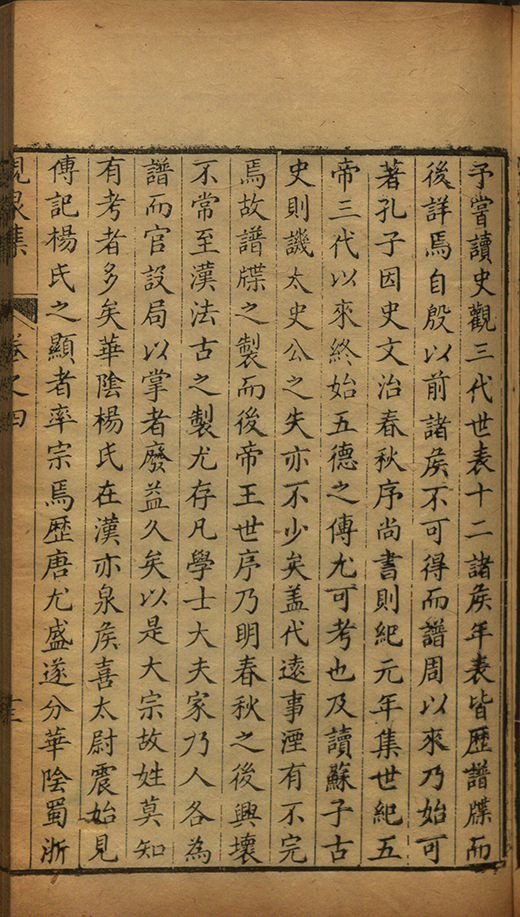 予嘗讀史觀三代世表十二諸矦年表皆歴譜牒而
後詳焉自殷以前諸矦不可得而譜周以來乃始可
著孔子因史文治春秋序尚書則紀元年集世紀五
帝三代以來終始五德之傳尤可考也及讀蘇子古
史則譏太史公之失亦不少矣盖代逺事湮有不完
焉故譜牒之製而後帝王世序乃明春秋之後興壞
不常至漢法古之製尤存凡學士大夫家乃人各為
譜而官設局以掌者廢益久矣以是大宗故姓莫知
有考者多矣華陰楊氏在漢亦泉矦喜太尉震始見
傳記楊氏之顯者率宗焉歴唐尤盛遂分華陰蜀浙
覞泉集 卷之四